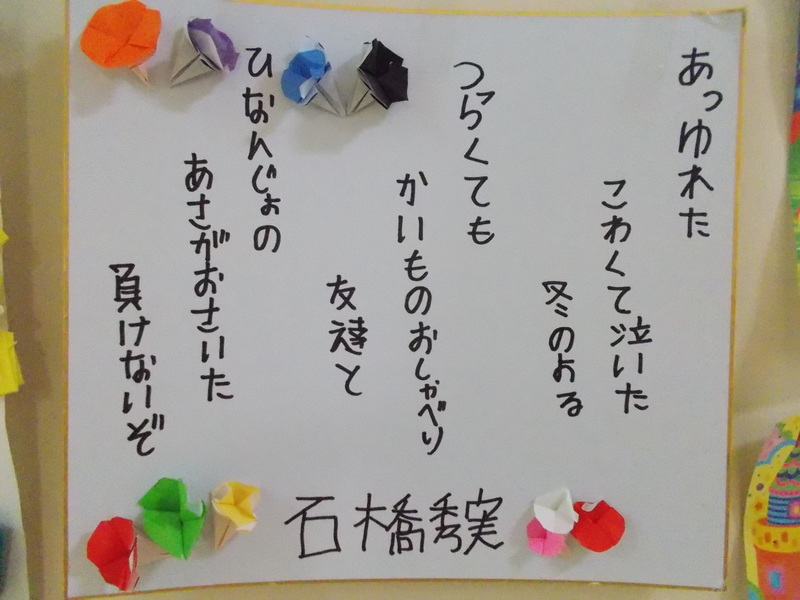 あっゆれた
こわくて泣いた
冬のよる
つらくても
かいものおしゃべり
友達と
ひなんじょの
あさがおさいた
負けないぞ
石橋秀実